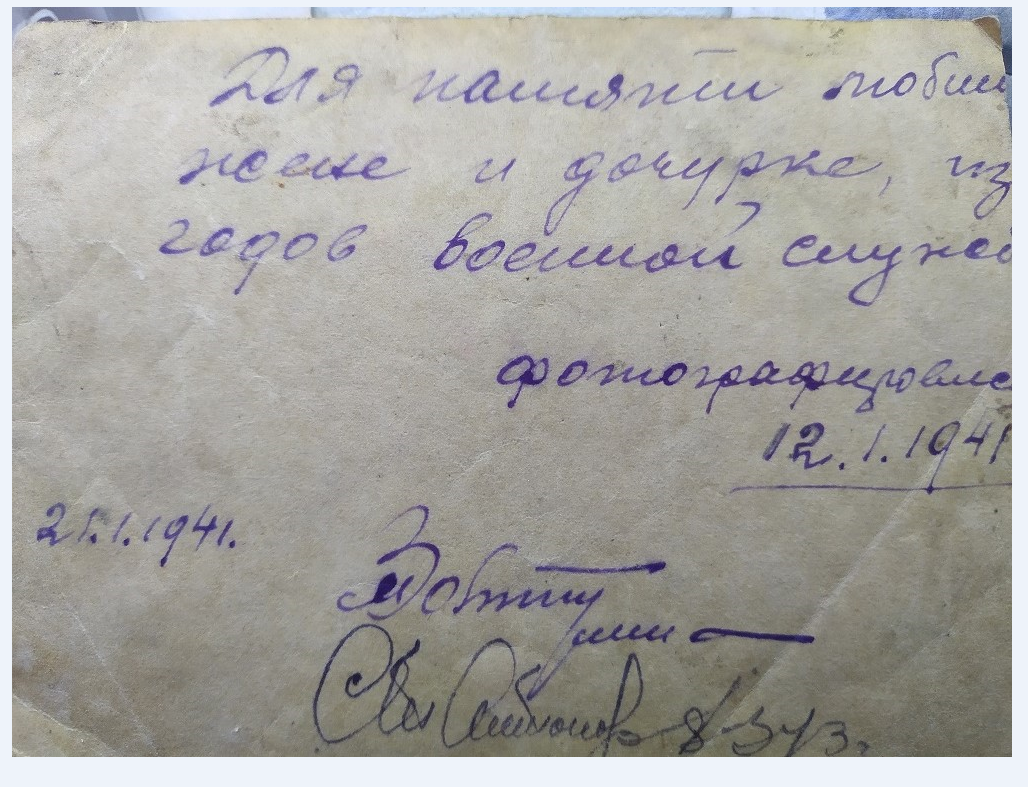 Для памяти любим
жене и дочурке, из
годов военной служб
фотографировлс
12.1.1941
21.1.1941.